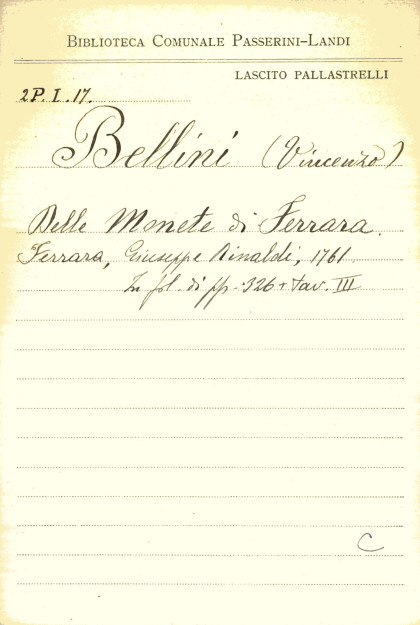 BIBLIOTECA COMUNALE PASSERINI-LANDI
LASCITO PALLASTRELLI
2P.I.17.
Bellini (Vincenzo)
Delle Monete di Ferrara.
Ferrara, Giuseppe Rinaldi, 1761.
In fol. di pp. 326 + tav. III
C